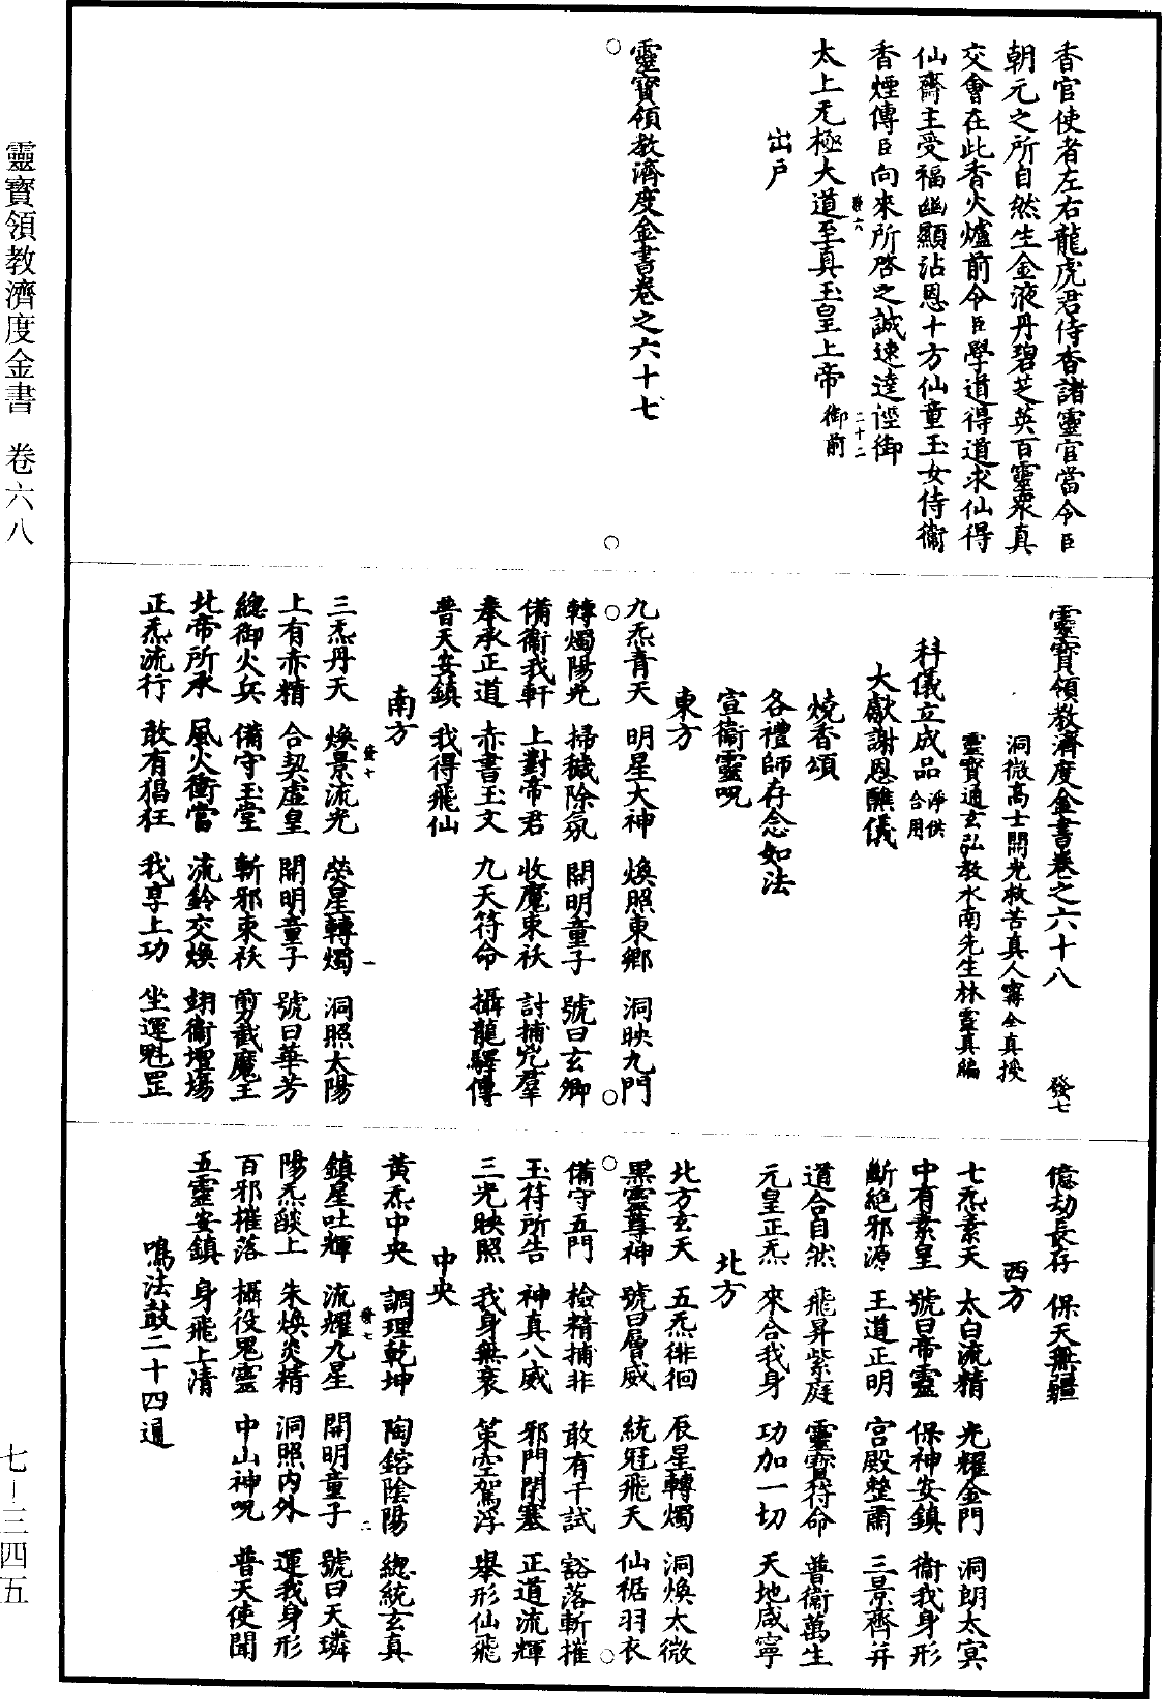 香官使者左右龍虎君侍香諸靈官當令臣
朝元之所自然生金液丹碧芝英百靈衆真
交會在此香火爐前令臣學道得道求仙得
仙齋主受福幽顯沾恩十方仙童玉女侍衞
香煙傳臣向來所啓之誠速達徑御
太上无極大道至真玉皇上帝御前
出戶
靈寶領教濟度金書卷之六十七
靈寶領教濟度金書卷之六十八
發七
洞微高士開光救苦真人甯全真授
靈寶通玄弘教水南先生林靈真編
科儀立成品 淨供合用
大獻謝恩醮儀
燒香頌
各禮師存念如法
宣衞靈呪
東方
九炁青天 明星大神 煥照東鄉 洞映九門
轉燭陽光 掃穢除氛 開明童子 號曰玄卿
備衞我軒 上對帝君 收魔束祅 討捕兇羣
奉承正道 赤書玉文 九天符命 攝龍驛傳
普天安鎮 我得飛仙
南方
三炁丹天 煥景流光 熒星轉燭 洞照太陽
上有赤精 合契虛皇 開明童子 號曰華芳
總御火兵 備守玉堂 斬邪束祅 剪截魔王
北帝所承 風火衝當 流鈴交煥 翊衞壇場
正炁流行 敢有猖狂 我享上功 坐運魁罡
億劫長存 保天無疆
西方
七炁素天 太白流精 光耀金門 洞朗太冥
中有素皇 號曰帝靈 保神安鎮 衞我身形
斷絕邪源 王道正明 宮殿整肅 三景齊并
道合自然 飛昇紫庭 靈寶符命 普衞萬生
元皇正炁 來合我身 功加一切 天地咸寧
北方
北方玄天 五炁徘徊 辰星轉燭 洞煥太微
黑靈尊神 號曰層威 統冠飛天 仙裾羽衣
備守五門 檢精捕非 敢有干試 豁落斬摧
玉符所告 神真八威 邪門閉塞 正道流輝
三光映照 我身無衰 策空駕浮 舉形仙飛
中央
黃炁中央 調理乾坤 陶鎔陰陽 總統玄真
鎮星吐輝 流耀九星 開明童子 號曰天璘
陽炁燄上 朱煥炎精 洞照內外 運我身形
百邪摧落 攝役鬼靈 中山神呪 普天使聞
五靈安鎮 身飛上清
鳴法鼓二十四通
靈寶領教濟度金書 卷六八
七—三四五